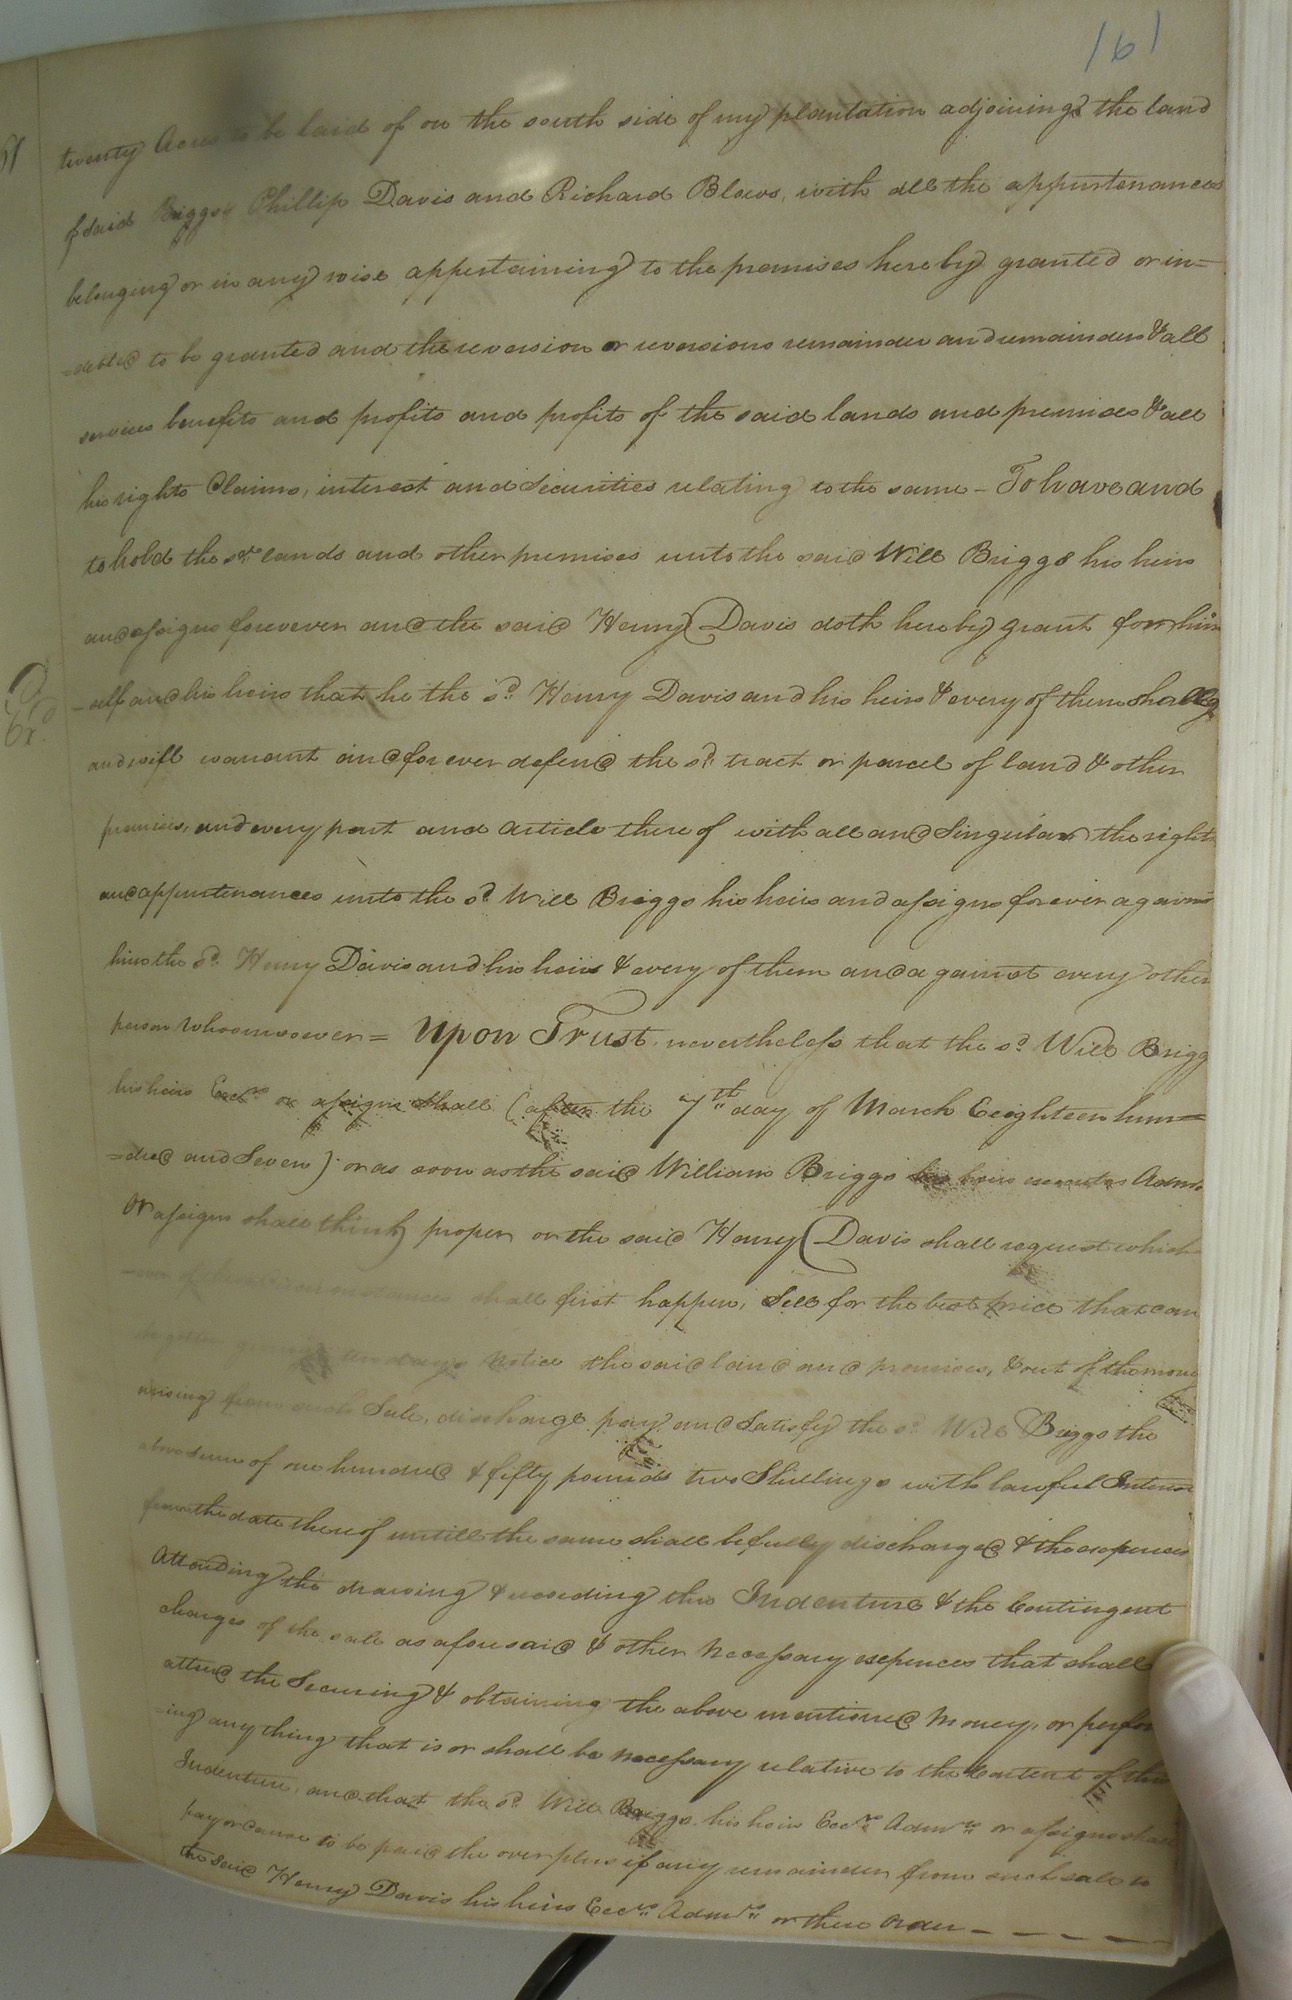 161
twenty Acres to be laid of on the south side of my plantation adjoining the land
of said Briggs Phillip Davis and Richard Blows, with all the appurtenances
belonging or in any wise appertaining to the premises hereby granted or in=
=debted to be granted and the reversion or reversions remainder and remainders & all
services benefits and profits and profits of the said lands and premises & all
his rights Claims, interest and Securities relating to the same - To have and
to hold the sd. lands and other premises unto the said Will Briggs his heirs
and assigns forevever and the said Henry Davis doth hereby grant for him
-self and his heirs that he the sd. Henry Davis and his heirs & every of them shall
and will warrant and forever defend the sd. tract or parcel of land & other
premises, and every part and article thereof with all and Singular the rights
and appurtenances unto the sd. Will Briggs his heirs and assigns forever against
him the sd. Henry Davis and his heirs & every of them and against every other
person Whoomsoever = Upon Trust, nevertheless that the sd. Will Brigg
his heirs Execrs. or assigns shall (after the 7th day of March Eeighteen hun=
=dred and Seven) or as soon as the said William Briggs his heirs executes Admrs
or assigns shall think proper or the said Henry Davis shall request which
of circumstances shall first happen, Sell for the best price that can
ten days Notice the said land and premises, & out of the money
arising from such Sale, discharge pay and Satisfy the sd. Will Briggs the
above sum of one hundred & fifty pounds two Shillings with lawful Interest
from the date thereof untill the same shall be fully discharged & the expences
Attending the drawing & recording this Indenture & the Contingent
charges of the sale as aforesaid & other Necessary expences that shall
attend the Securing & obtaining the above mentioned Money, or perfor
=ing any thing that is or shall be necessary relative to the Content of this
Indenture, and that the sd. Will Briggs his heirs Execrs. Admrs. or assigns shall
pay or cause to be paid the over plus if any remainder from such sale to
the said Henry Davis his heirs Execrs. Admrs. or there order - - - - -